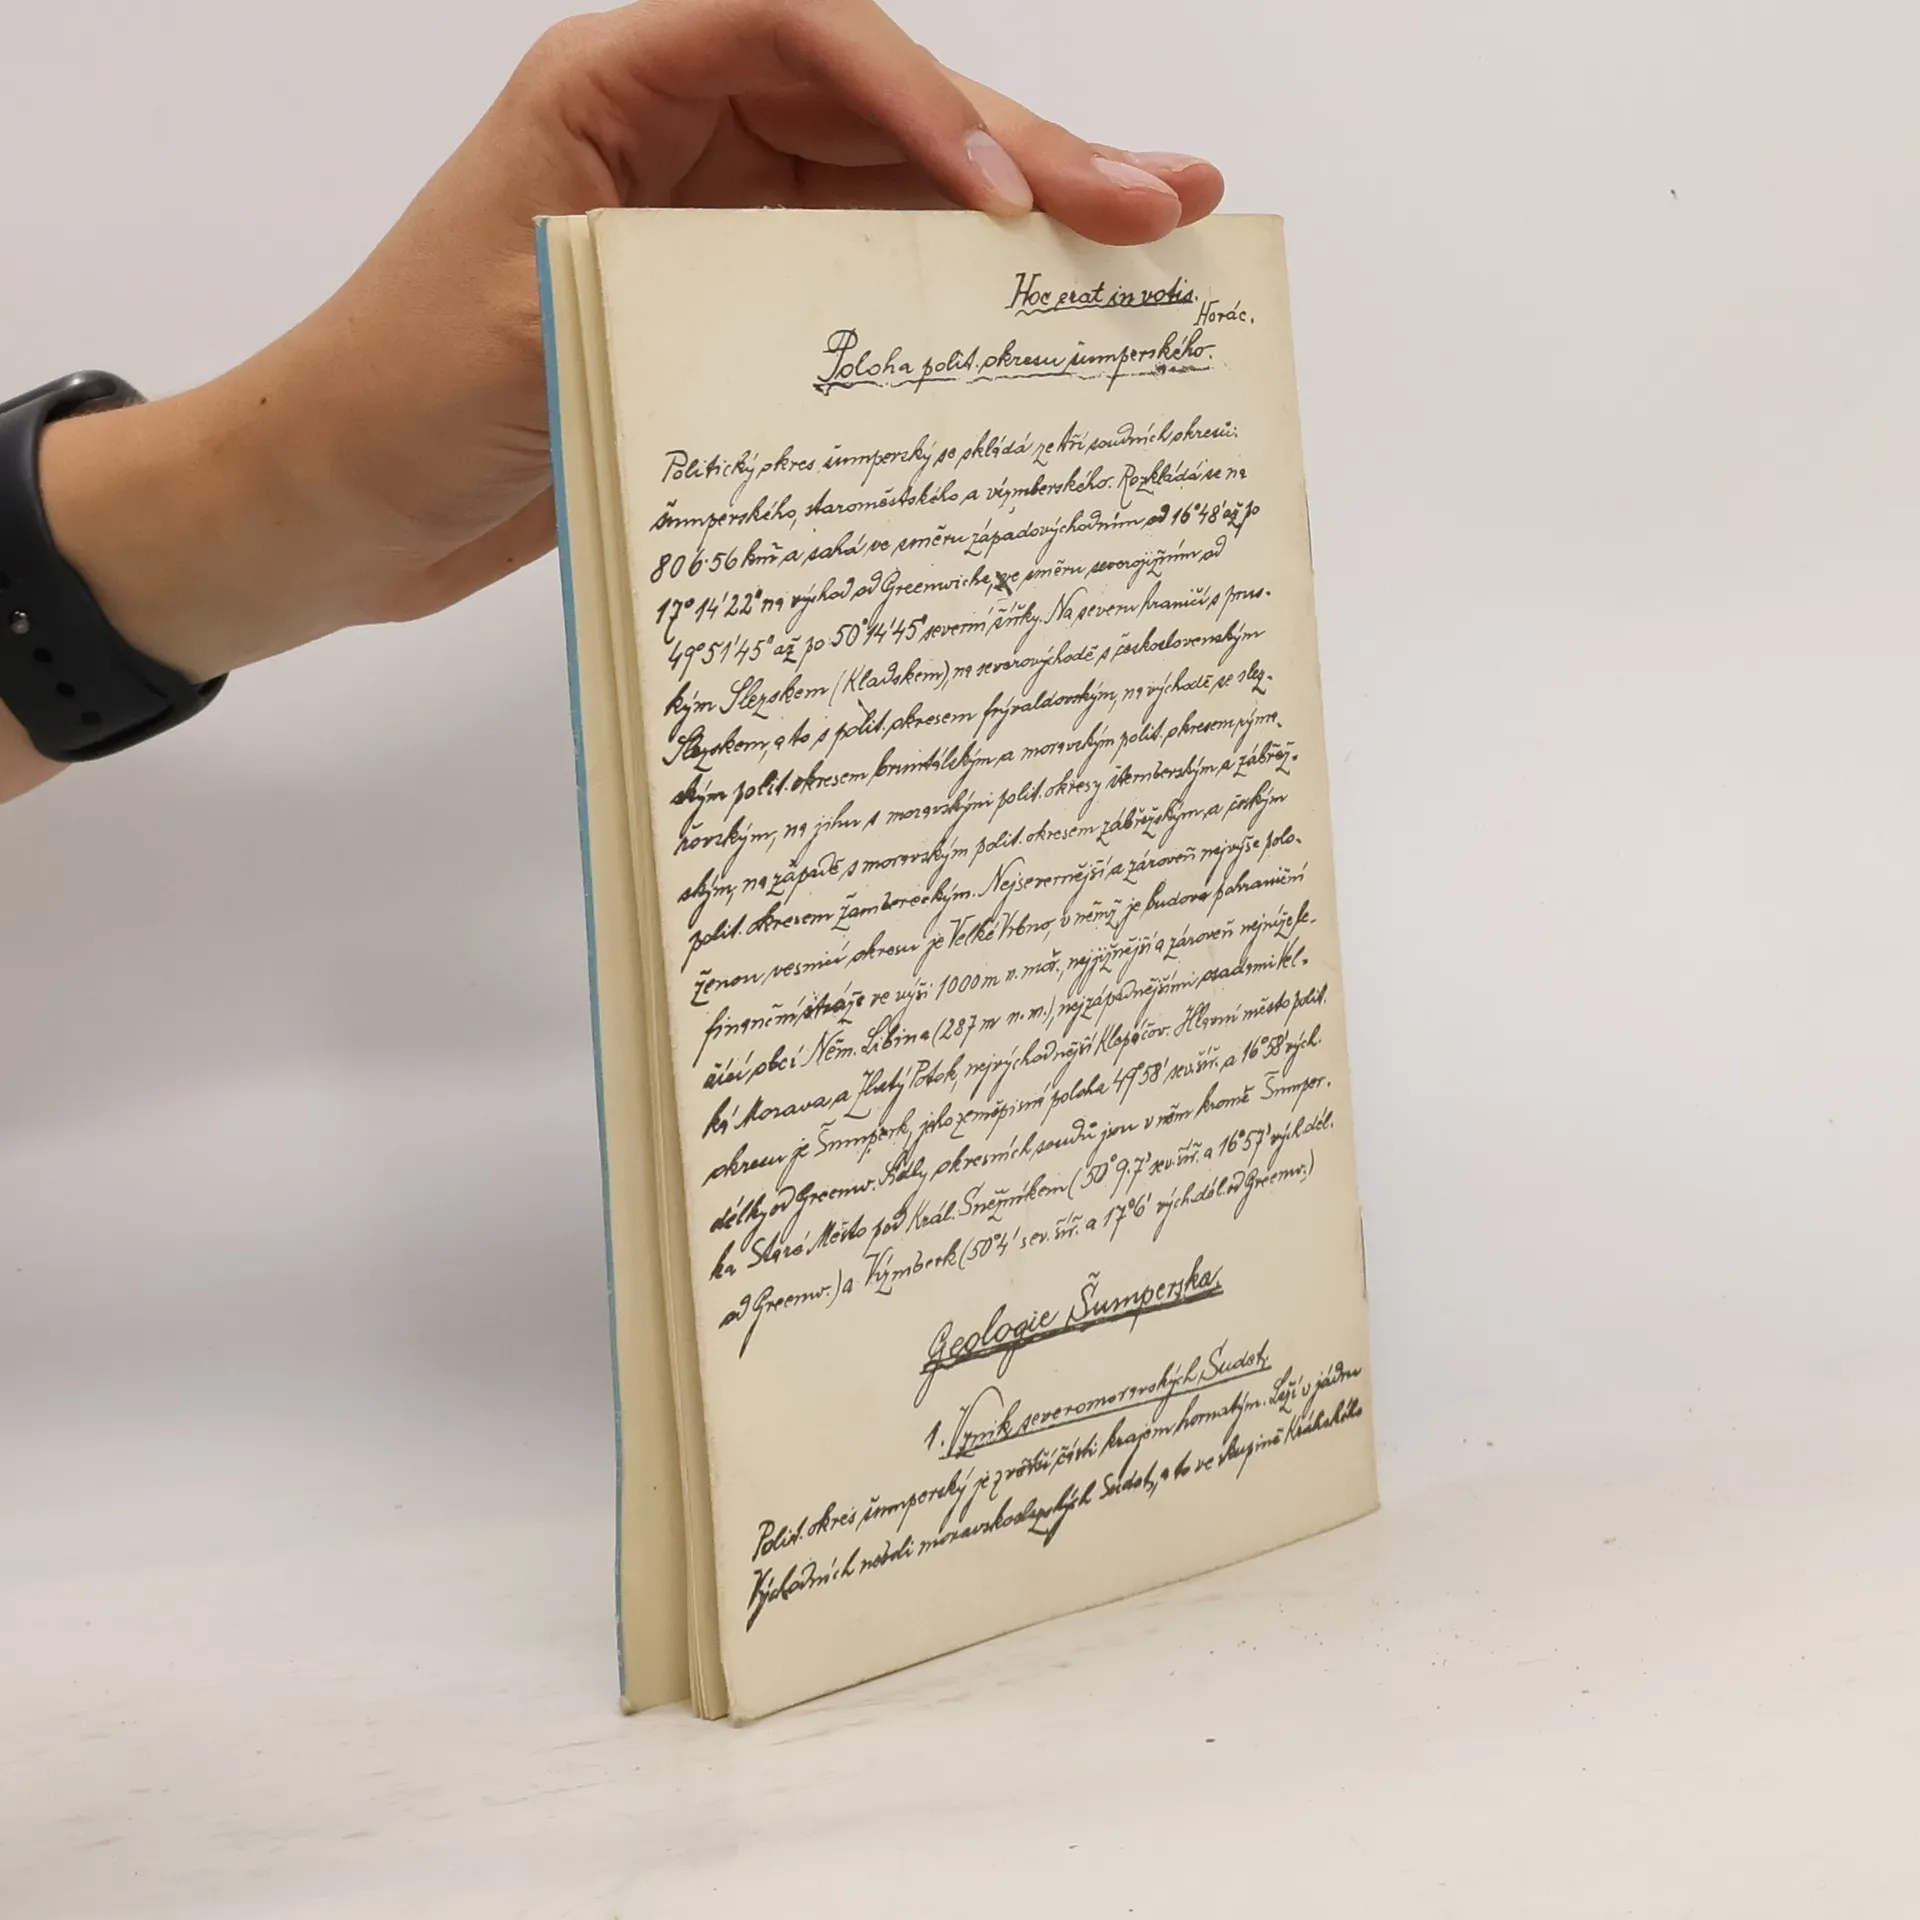 Hoc erat in votis.
Horác.
Poloha polit. okresu šumperského.
Politický okres šumperský se skládá ze tří soudních okresů:
šumperského, staroměstského a vízmberského. Rozkládá se na
806·56 km² a sahá ve směru západovýchodním od 16°48' až po
17°14'22" na východ od Greenwiche, ve směru severojižním od
49°51'45" až po 50°14'45" severní šířky. Na severu hraničí s prus-
kým Slezskem (Kladskem), na severovýchodě s československým
Slezskem, a to s polit. okresem frývaldovským, na východě se slez-
ským polit. okresem bruntálským a moravským polit. okresem rýma-
řovským, na jihu s moravskými polit. okresy šternberským a zábřež-
ským, na západě s moravským polit. okresem zábřežským a českým
polit. okresem žambereckým. Nejsevernější a zároveň nejvýše polo-
ženou vesnicí okresu je Velké Vrbno, v němž je budova pohraniční
finanční stráže ve výši 1000 m n. moř., nejjižnější a zároveň nejníže le-
žící obcí Něm. Libina (287 m n. m.), nejzápadnějšími osadami Vel-
ká Morava a Zlatý Potok, nejvýchodnější Klepáčov. Hlavní město polit.
okresu je Šumperk, jeho zeměpisná poloha 49°58' sev. šíř. a 16°58' vých.
délky od Greenw. Sídly okresních soudů jsou v něm kromě Šumper-
ka Staré Město pod Král. Sněžníkem (50°9·7' sev. šíř. a 16°57' vých. dél.
od Greenw.) a Vízmberk (50°4' sev. šíř. a 17°6' vých. dél. od Greenw.)
Geologie Šumperska.
1. Vznik severomoravských Sudet.
Polit. okres šumperský je z větší části krajem hornatým. Leží v jádru
Východních neboli moravskoslezských Sudet, a to ve skupině Králického